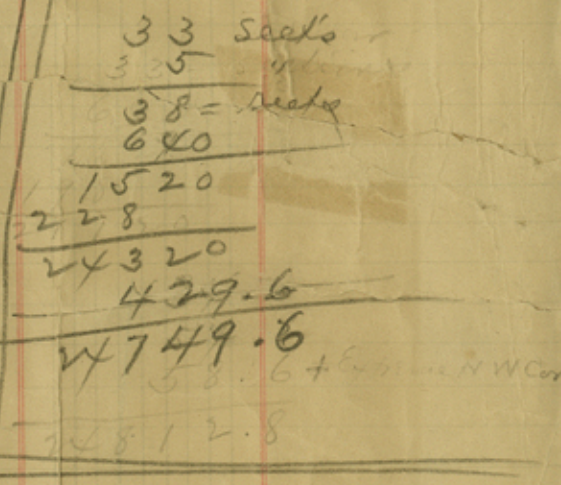 33 Sect's
5 "
38 = Sects
640
1520
228
24320
429.6
24749.6
58.6 + Extreme N W Cor
24812.8